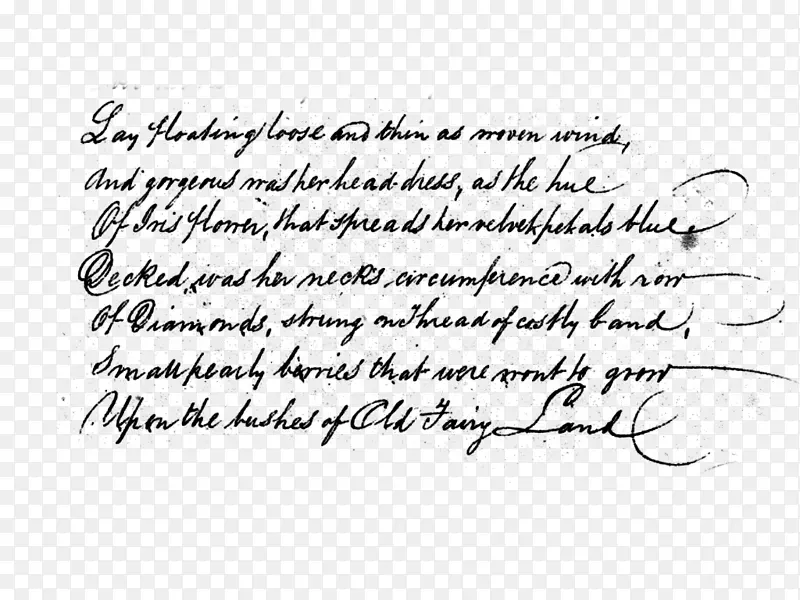 Lay floating loose and thin as woven wind,
And gorgeous was her head-dress, as the hue
Of Iris flower, that spreads her velvet petals blue.
Decked was her necks circumference with row
Of Diamonds, strung on Thread of costly band,
Small pearly berries that were wont to grow
Upon the bushes of Old Fairy Land